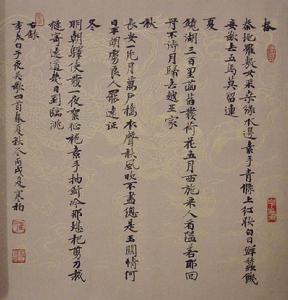 春
秦地羅敷女采桑綠水邊素手青條上紅妝白日鮮蠶饑
妾欲去五馬莫留連
夏
鏡湖三百里菡萏發荷花五月西施采人看隘若耶回
舟不待月歸去越王家
秋
長安一片月萬戶擣衣聲秋風吹不盡總是玉關情何
日平胡虜良人罷遠征
冬
明朝驛使發一夜絮征袍素手抽針冷那堪把剪刀裁
縫寄遠道幾日到臨洮
右錄
李白子夜吳歌四首春夏秋冬丙戌夏寒